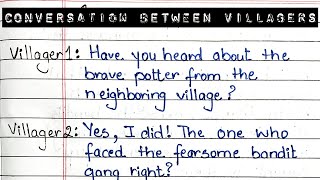 CONVERSATION BETWEEN VILLAGERS
Villager 1: Have you heard about the
brave potter from the
neighboring village?
Villager 2: Yes, I did! The one who
faced the fearsome bandit
gang right?